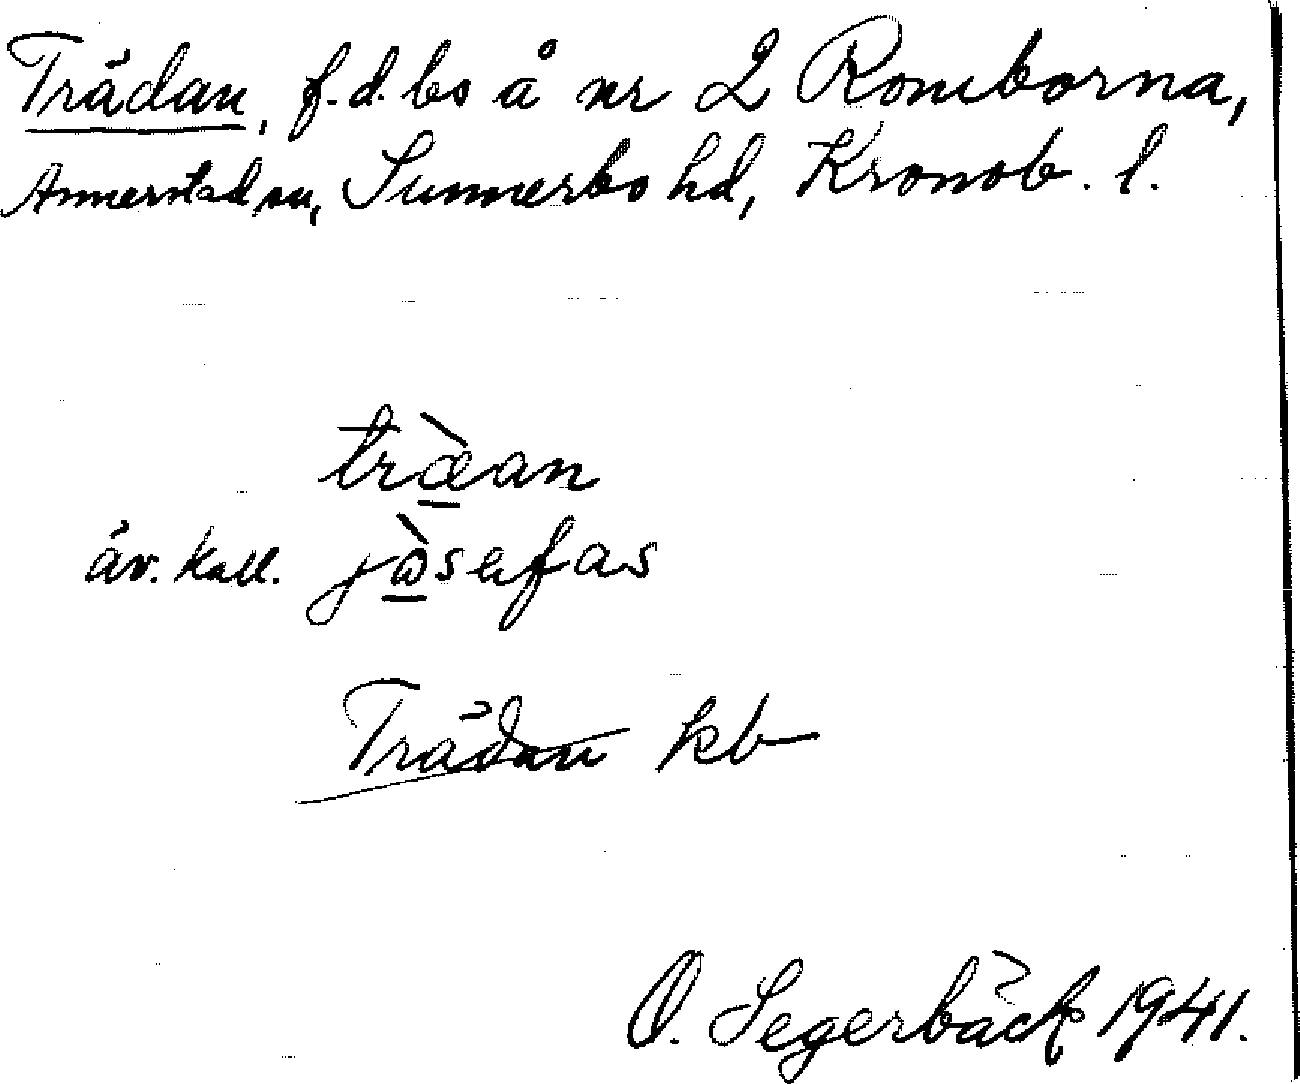 Trädan, f.d. bo å nr 2 Romborna,
Annerstad sn, Sunnerbo hd, Kronob. l.
træ̀an
äv. kall. jòsefas
Trädan kb
O. Segerbäck 1941.